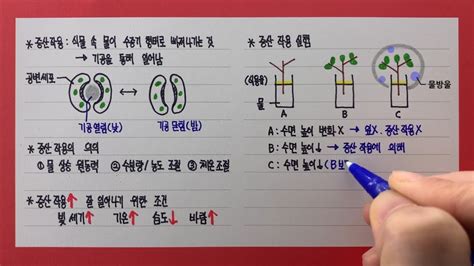 * 증산 작용 : 식물 속 물이 수증기 형태로 빠져나가는 것
→ 기공을 통해 일어남
공변세포
기공 열림(낮)
기공 닫힘(밤)
* 증산 작용의 의의
① 물 상승 원동력 ② 수분량/농도 조절 ③ 체온 조절
* 증산 작용↑ 잘 일어나기 위한 조건
빛 세기↑ 기온↑ 습도↓ 바람↑
* 증산 작용 실험
물방울
(식용유)
물
A B C
A : 수면 높이 변화 X → 잎X. 증산 작용X
B : 수면 높이↓ → 증산 작용에 의해
C : 수면 높이↓ (B보